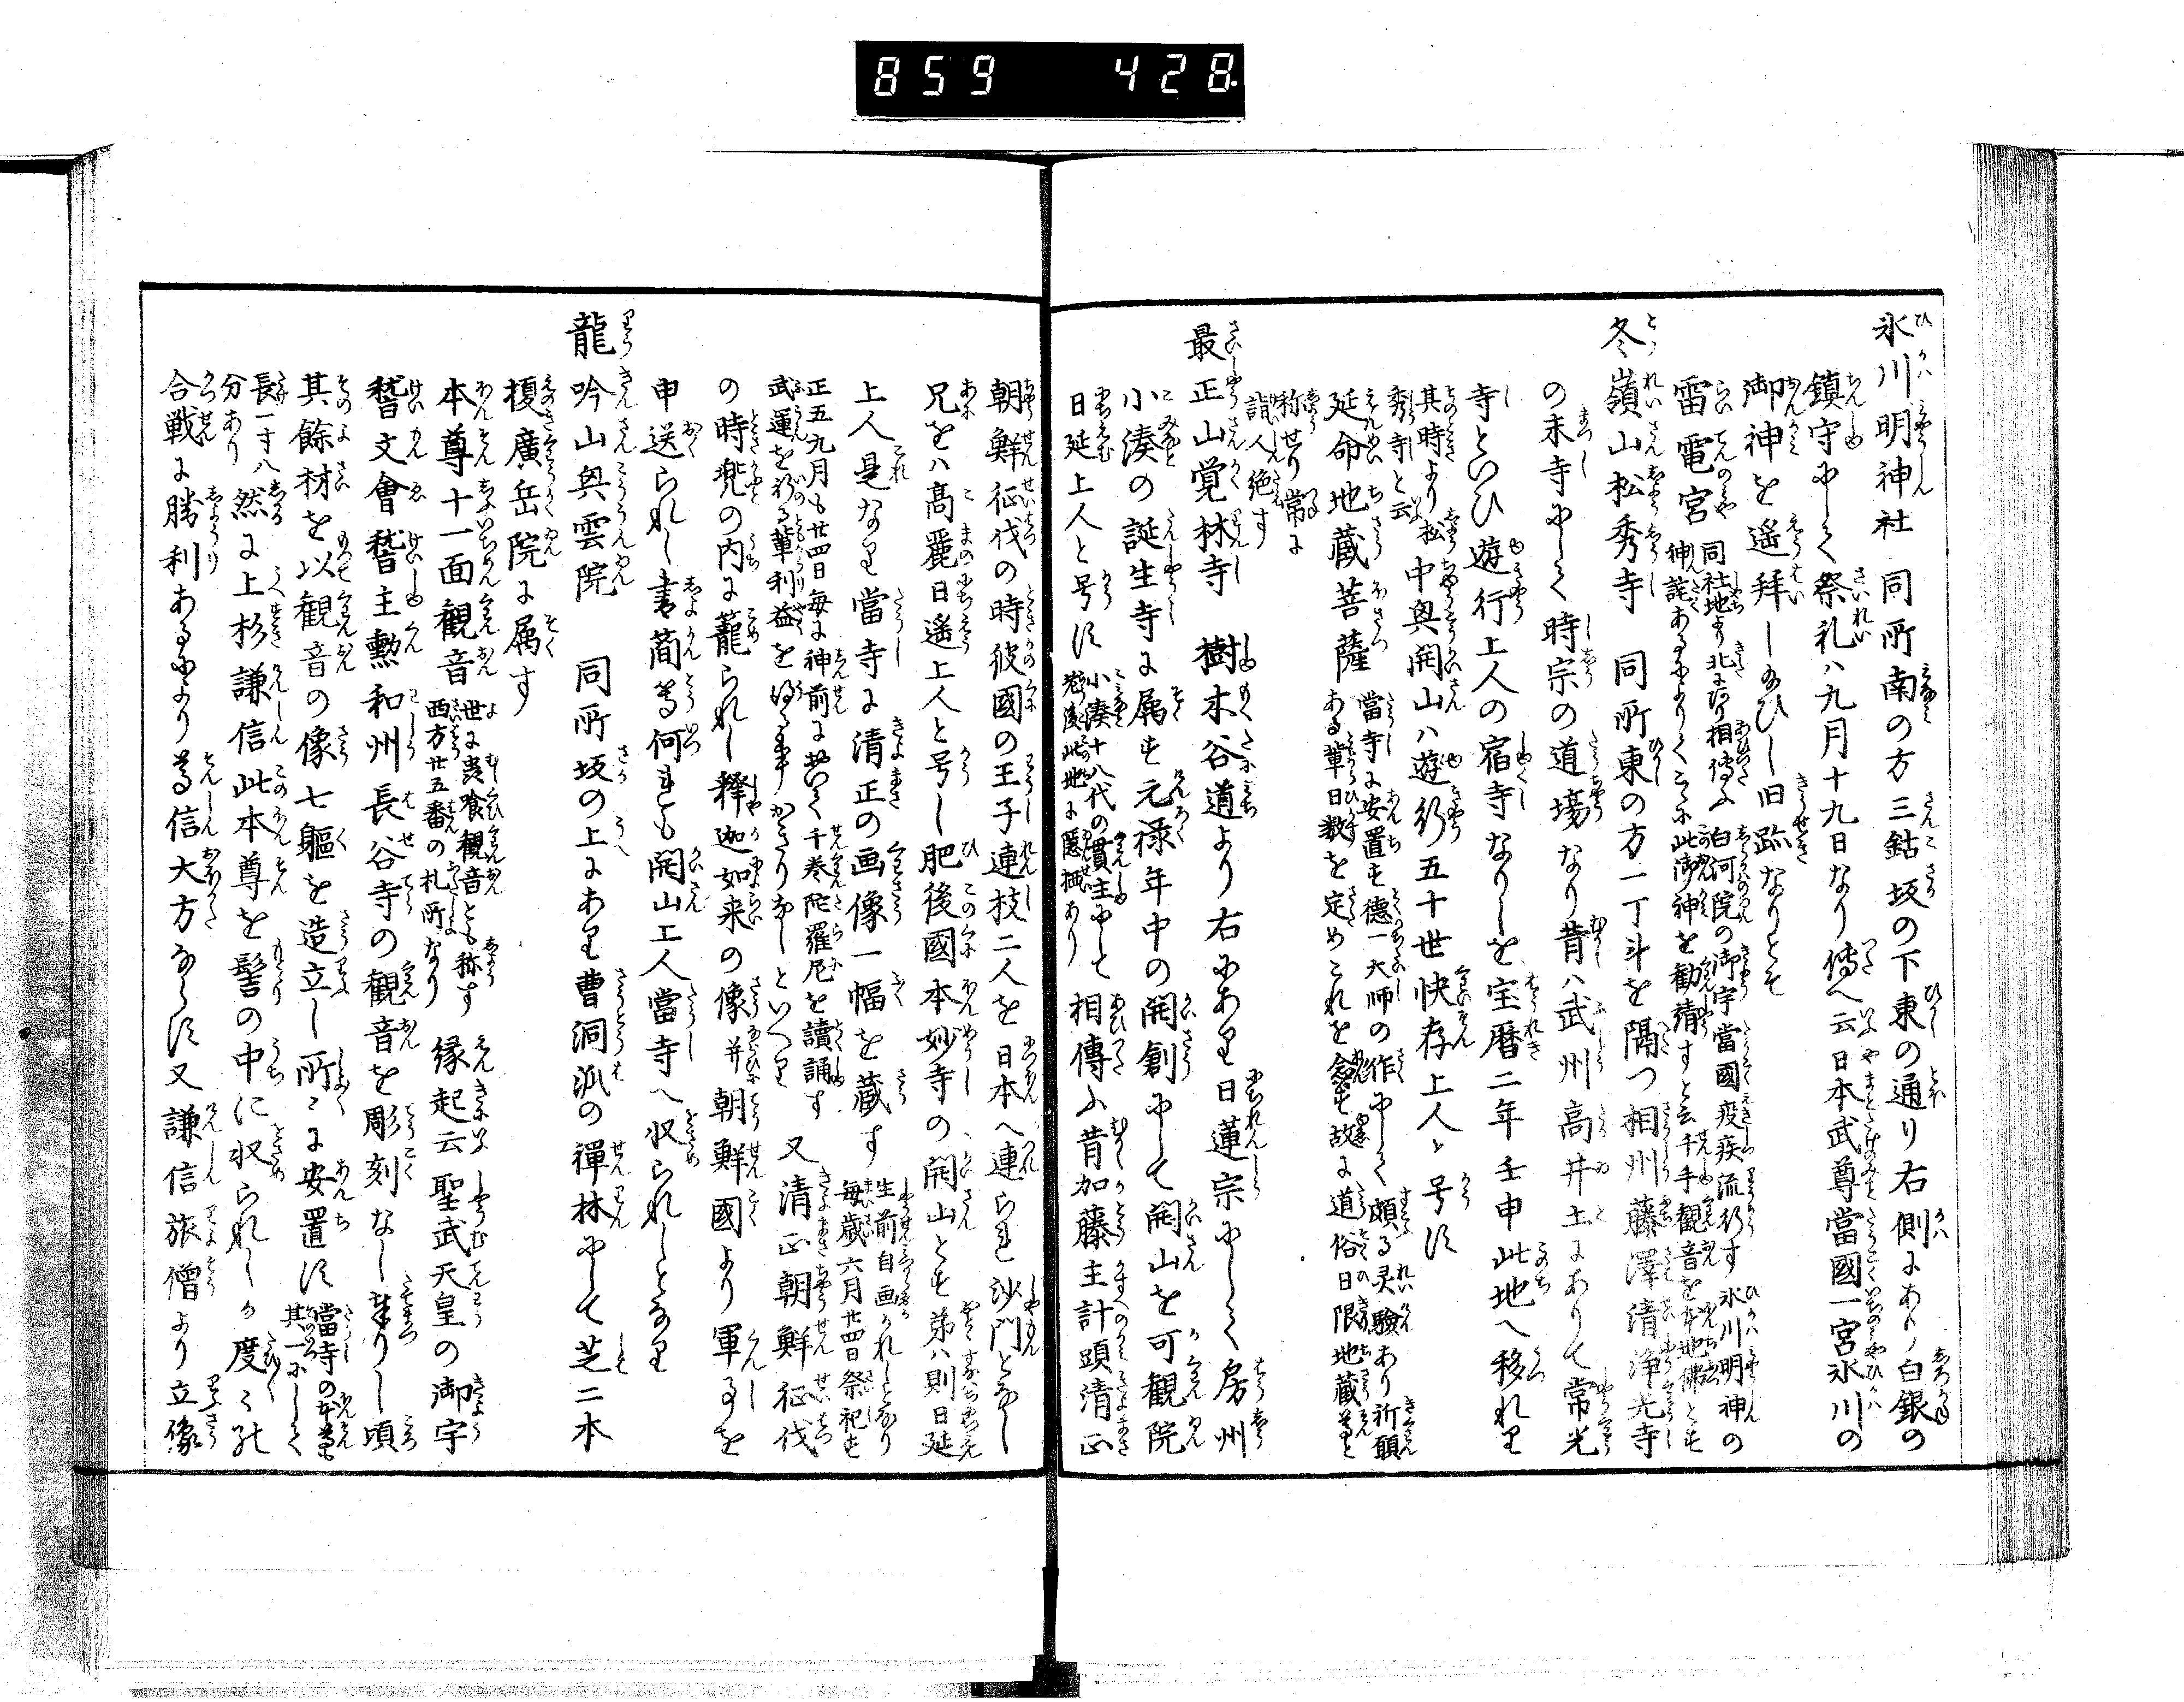 859 428
氷川明神社 同所南の方三鈷坂の下東の通り右側にあり白銀の
鎮守にして祭礼ハ九月十九日なり傳へ云日本武尊當國一宮氷川の
御神を遥拝し給ひし旧跡なりとそ
雷電宮 同社地より北にあり相傳ふ白河院の御宇當國疫疾流行す氷川明神の
神託あるによりてこゝに此御神を勧請すと云千手観音を本地佛とす
冬嶺山松秀寺 同所東の方一丁斗を隔つ相州藤澤清浄光寺
の末寺にして時宗の道場なり昔ハ武州高井土にありて常光
寺といひ遊行上人の宿寺なりしを宝暦二年壬申此地へ移れり
其時より松
秀寺と云 中興開山ハ遊行五十世快存上人と号す
延命地蔵菩薩 當寺に安置す徳一大师の作にして頗る灵驗あり祈願
ある輩日数を定めこれを念す故に道俗日限地蔵尊と
称せり常に
詣人絶す
最正山覚林寺 樹木谷道より右にあり日蓮宗にして房州
小湊の誕生寺に属す元禄年中の開創にして開山を可観院
日延上人と号す 小湊十八代の貫主にして
老後此地に隠栖あり 相傳ふ昔加藤主計頭清正
朝鮮征伐の時彼國の王子連枝二人を日本へ連られ沙門となし
兄をハ高麗日遥上人と号し肥後國本妙寺の開山とす弟ハ則日延
上人是なり當寺に清正の画像一幅を蔵す 生前自画かれしとなり
毎歳六月廿四日祭祀す
正五九月も廿四日毎に神前において千巻陀羅尼を讀誦す
武運を祈る輩利益を得る事かきりなしといへり 又清正朝鮮征伐
の時兜の内に籠られし釋迦如来の像并朝鮮國より軍事を
申送られし書簡等何れも開山上人當寺へ収られしとなり
龍吟山興雲院 同所坂の上にあり曹洞派の禪林にして芝二本
榎廣岳院に属す
本尊十一面観音 世に虫喰観音とも称す
西方廿五番の札所なり 縁起云聖武天皇の御宇
稽文會稽主勲和州長谷寺の観音を彫刻なし奉りし頃
其餘材を以観音の像七軀を造立し所々に安置す 當寺の本尊も
其一にして
長一寸八
分あり 然に上杉謙信此本尊を髻の中に収られしか度々の
合戦に勝利あるにより尊信大方ならす又謙信旅僧より立像